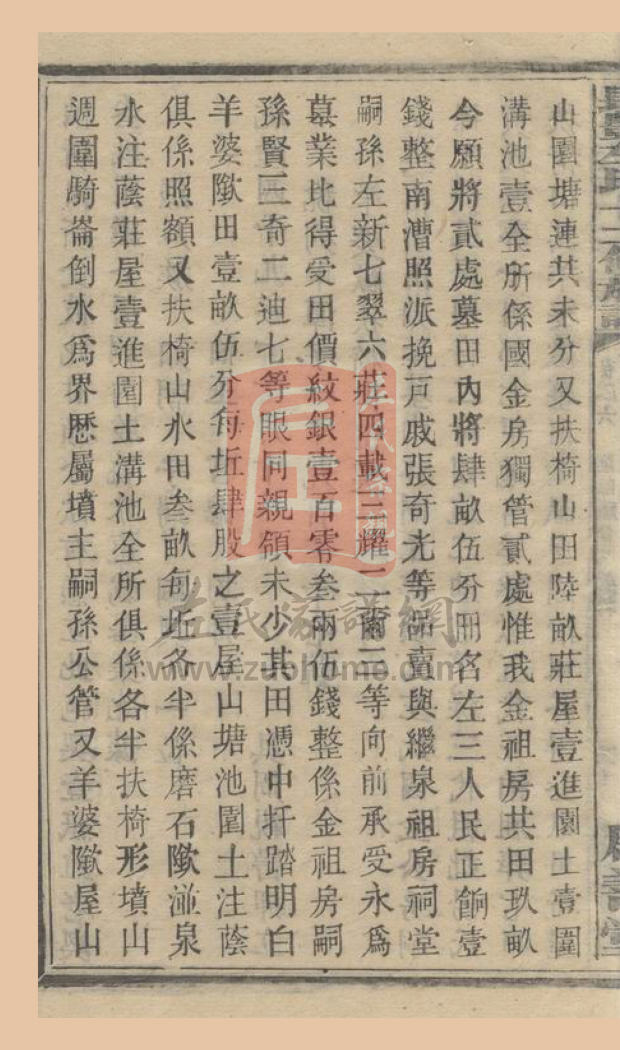 山園塘連共未分又扶椅山田陸畝莊屋壹進園土壹圍
溝池壹全所係國金房獨管貳處惟我金祖房共田玖畝
今願將貳處墓田內將肆畝伍分冊名左三人民正餉壹
錢整南漕照派挽戸戚張奇光等品賣與繼泉祖房祠堂
嗣孫左新七翠六莊四載三耀二爾三等向前承受永爲
墓業比得受田價紋銀壹百零叁兩伍錢整係金祖房嗣
孫賢三奇二迪七等眼同親領未少其田憑中扦踏明白
羊婆隞田壹畝伍分每坵肆股之壹屋山塘池園土注蔭
俱係照額又扶椅山水田叁畝每坵各半係磨石隞湴泉
水注蔭莊屋壹進園土溝池全所俱係各半扶椅形墳山
週圍騎崙倒水爲界歷屬墳主嗣孫公管又羊婆隞屋山
左氏家譜網
www.zuohome.com